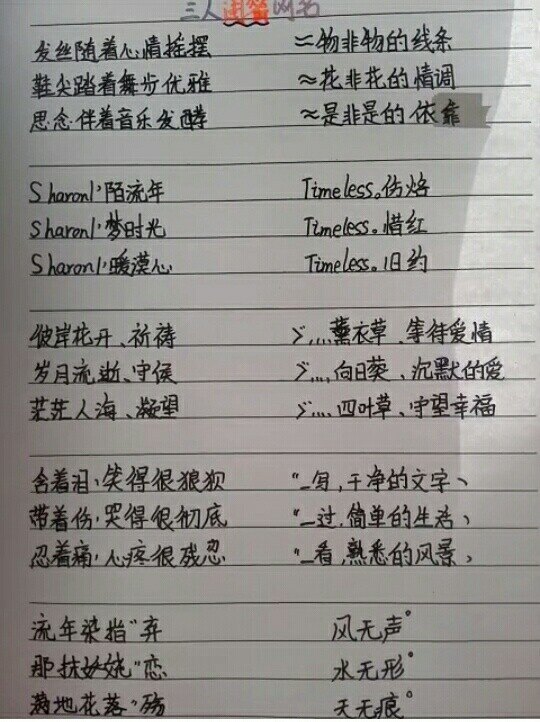 三人闺蜜网名
发丝随着心情摇摆 ≈物非物的线条
鞋尖踏着舞步优雅 ≈花非花的情调
思念伴着音乐发酵 ≈是非是的依靠
Sharonl·陌流年 Timeless。伤烙
Sharonl·梦时光 Timeless。惜红
Sharonl·暖漠心 Timeless。旧约
彼岸花开、祈祷 ゞ灬薰衣草、等待爱情
岁月流逝、守侯 ゞ灬向日葵、沉默的爱
茫茫人海、凝望 ゞ灬四叶草、守望幸福
含着泪,笑得很狼狈 “_写,干净的文字、
带着伤,哭得很彻底 “_过,简单的生活、
忍着痛,心疼很残忍 “_看,熟悉的风景、
流年染指"弃 风无声°
那抹妖娆"恋 水无形°
满地花落"殇 天无痕°